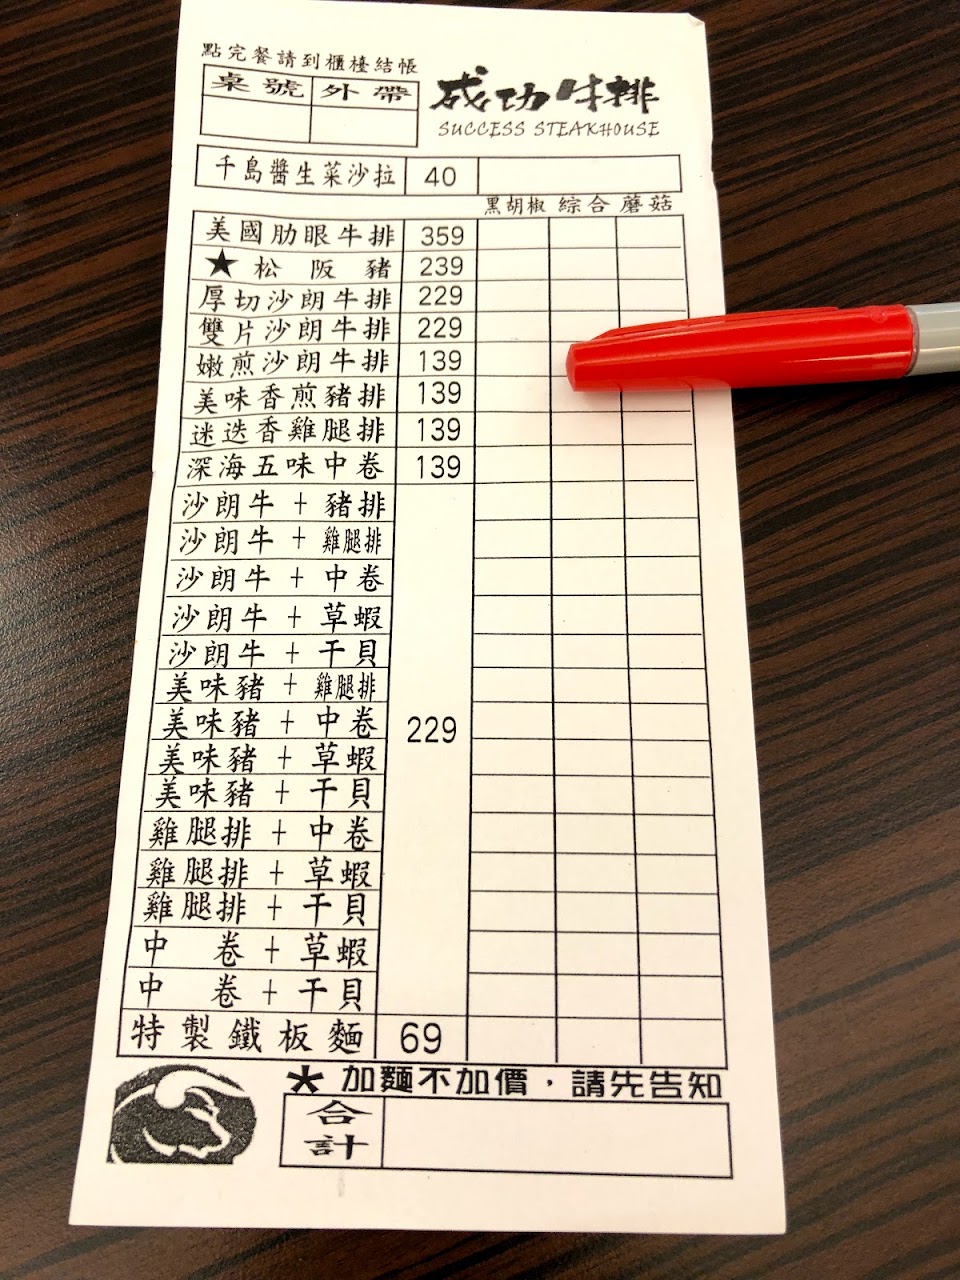 點完餐請到櫃檯結帳
桌號 外帶
成功牛排
SUCCESS STEAKHOUSE
千島醬生菜沙拉 40
黑胡椒 綜合 蘑菇
美國肋眼牛排 359
★松阪豬 239
厚切沙朗牛排 229
雙片沙朗牛排 229
嫩煎沙朗牛排 139
美味香煎豬排 139
迷迭香雞腿排 139
深海五味中卷 139
沙朗牛+豬排
沙朗牛+雞腿排
沙朗牛+中卷
沙朗牛+草蝦
沙朗牛+干貝
美味豬+雞腿排
美味豬+中卷 229
美味豬+草蝦
美味豬+干貝
雞腿排+中卷
雞腿排+草蝦
雞腿排+干貝
中卷+草蝦
中卷+干貝
特製鐵板麵 69
*加麵不加價，請先告知
合計